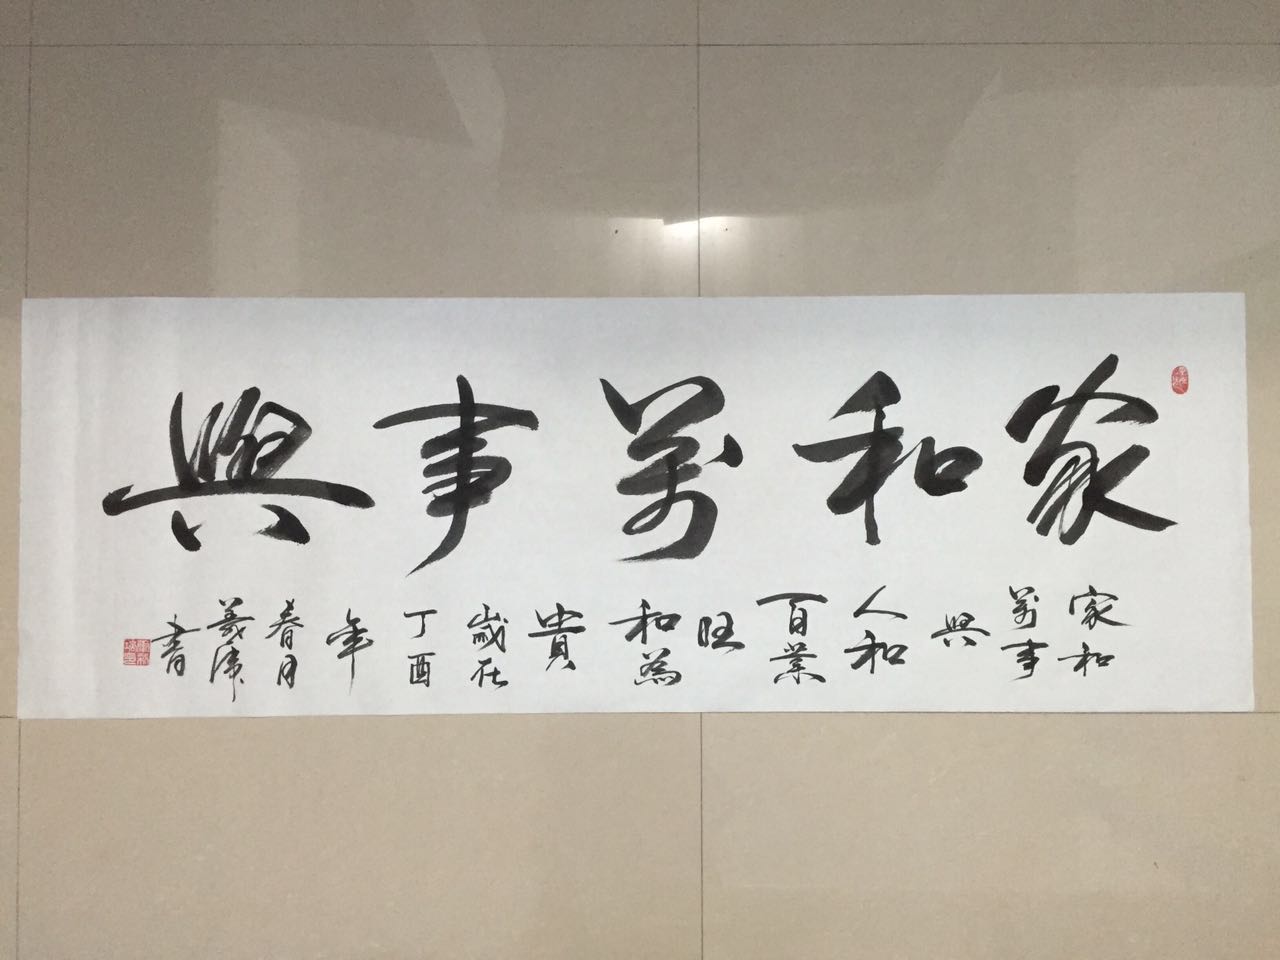 家和萬事興
家和萬事興人和百業旺和為貴歲在丁酉年春月羲津書